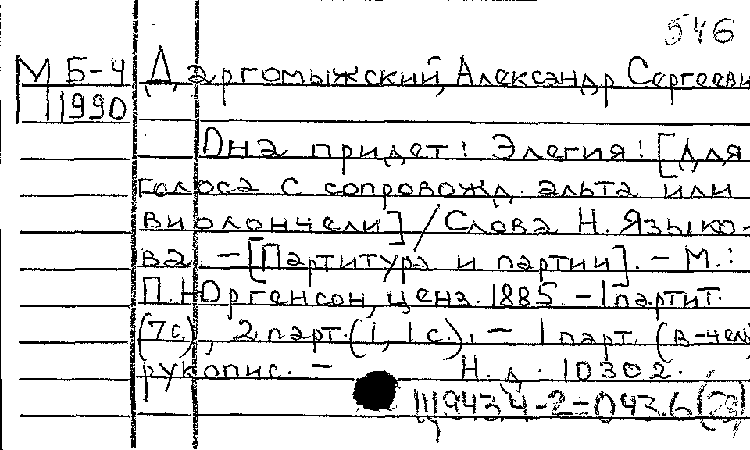 546
М Б-4 Даргомыжский, Александр Сергееви
11990
Она придет! Элегия! [Для
голоса с сопровожд. альта или
виолончели] / Слова Н. Языко-
ва. - [Партитура и партии]. - М.:
П. Юргенсон, ценз. 1885. - 1 партит.
(7с.), 2 парт. (1, 1 с.). - 1 парт. (в-чел)
рукопис. - Н.д. 10302.
Щ943.4-2=043.6(28)